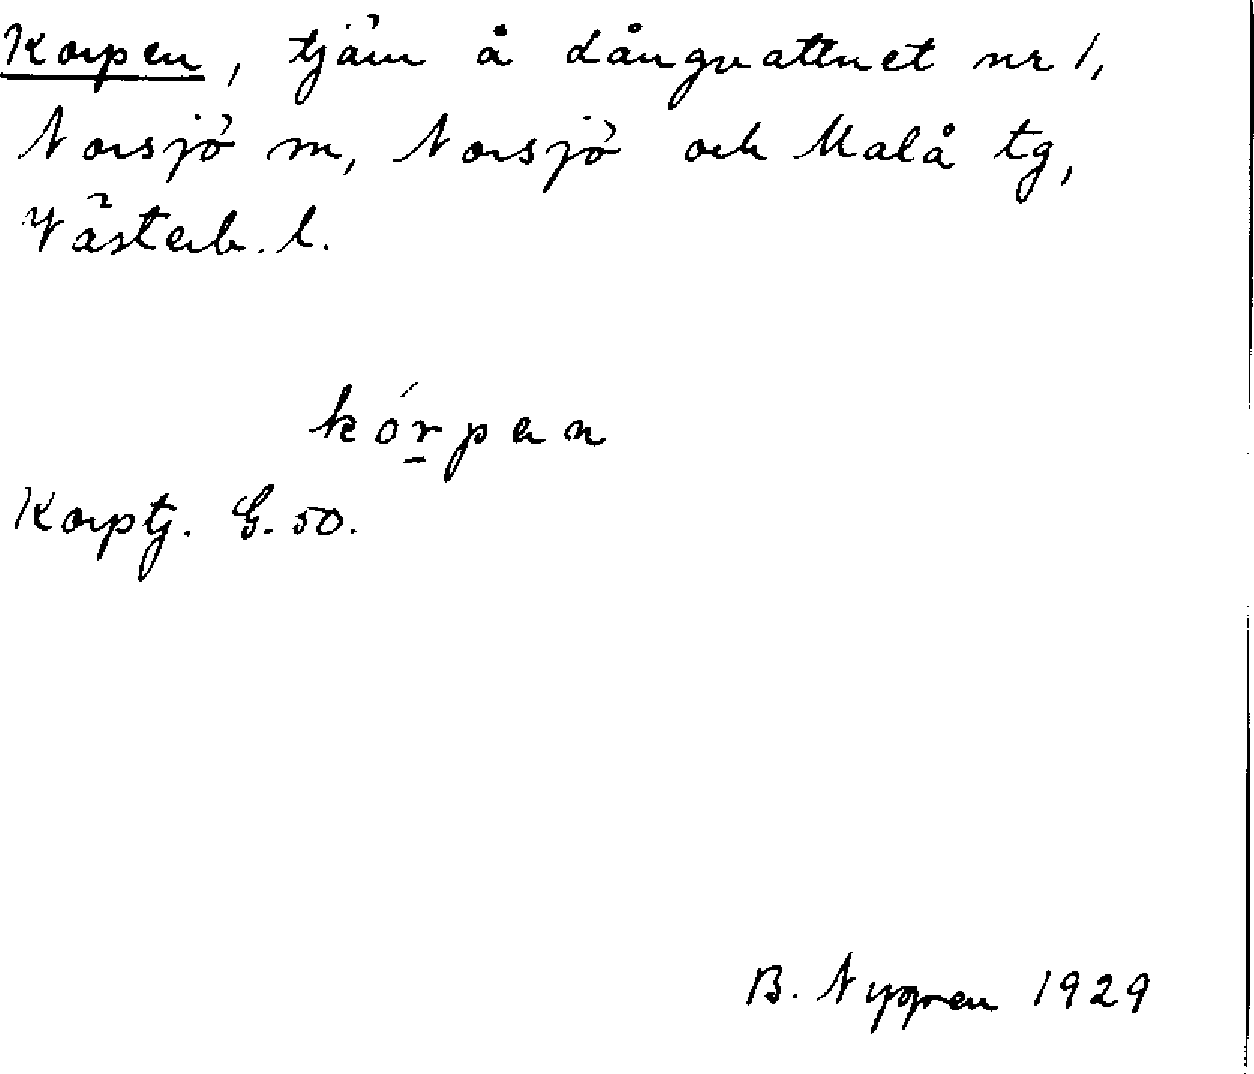 Korpen, tjärn å Långvattnet nr 1,
Norsjö m, Norsjö och Malå tg,
Västerb. l.
kórpen
Korptj. G. 50.
B. Nygren 1929